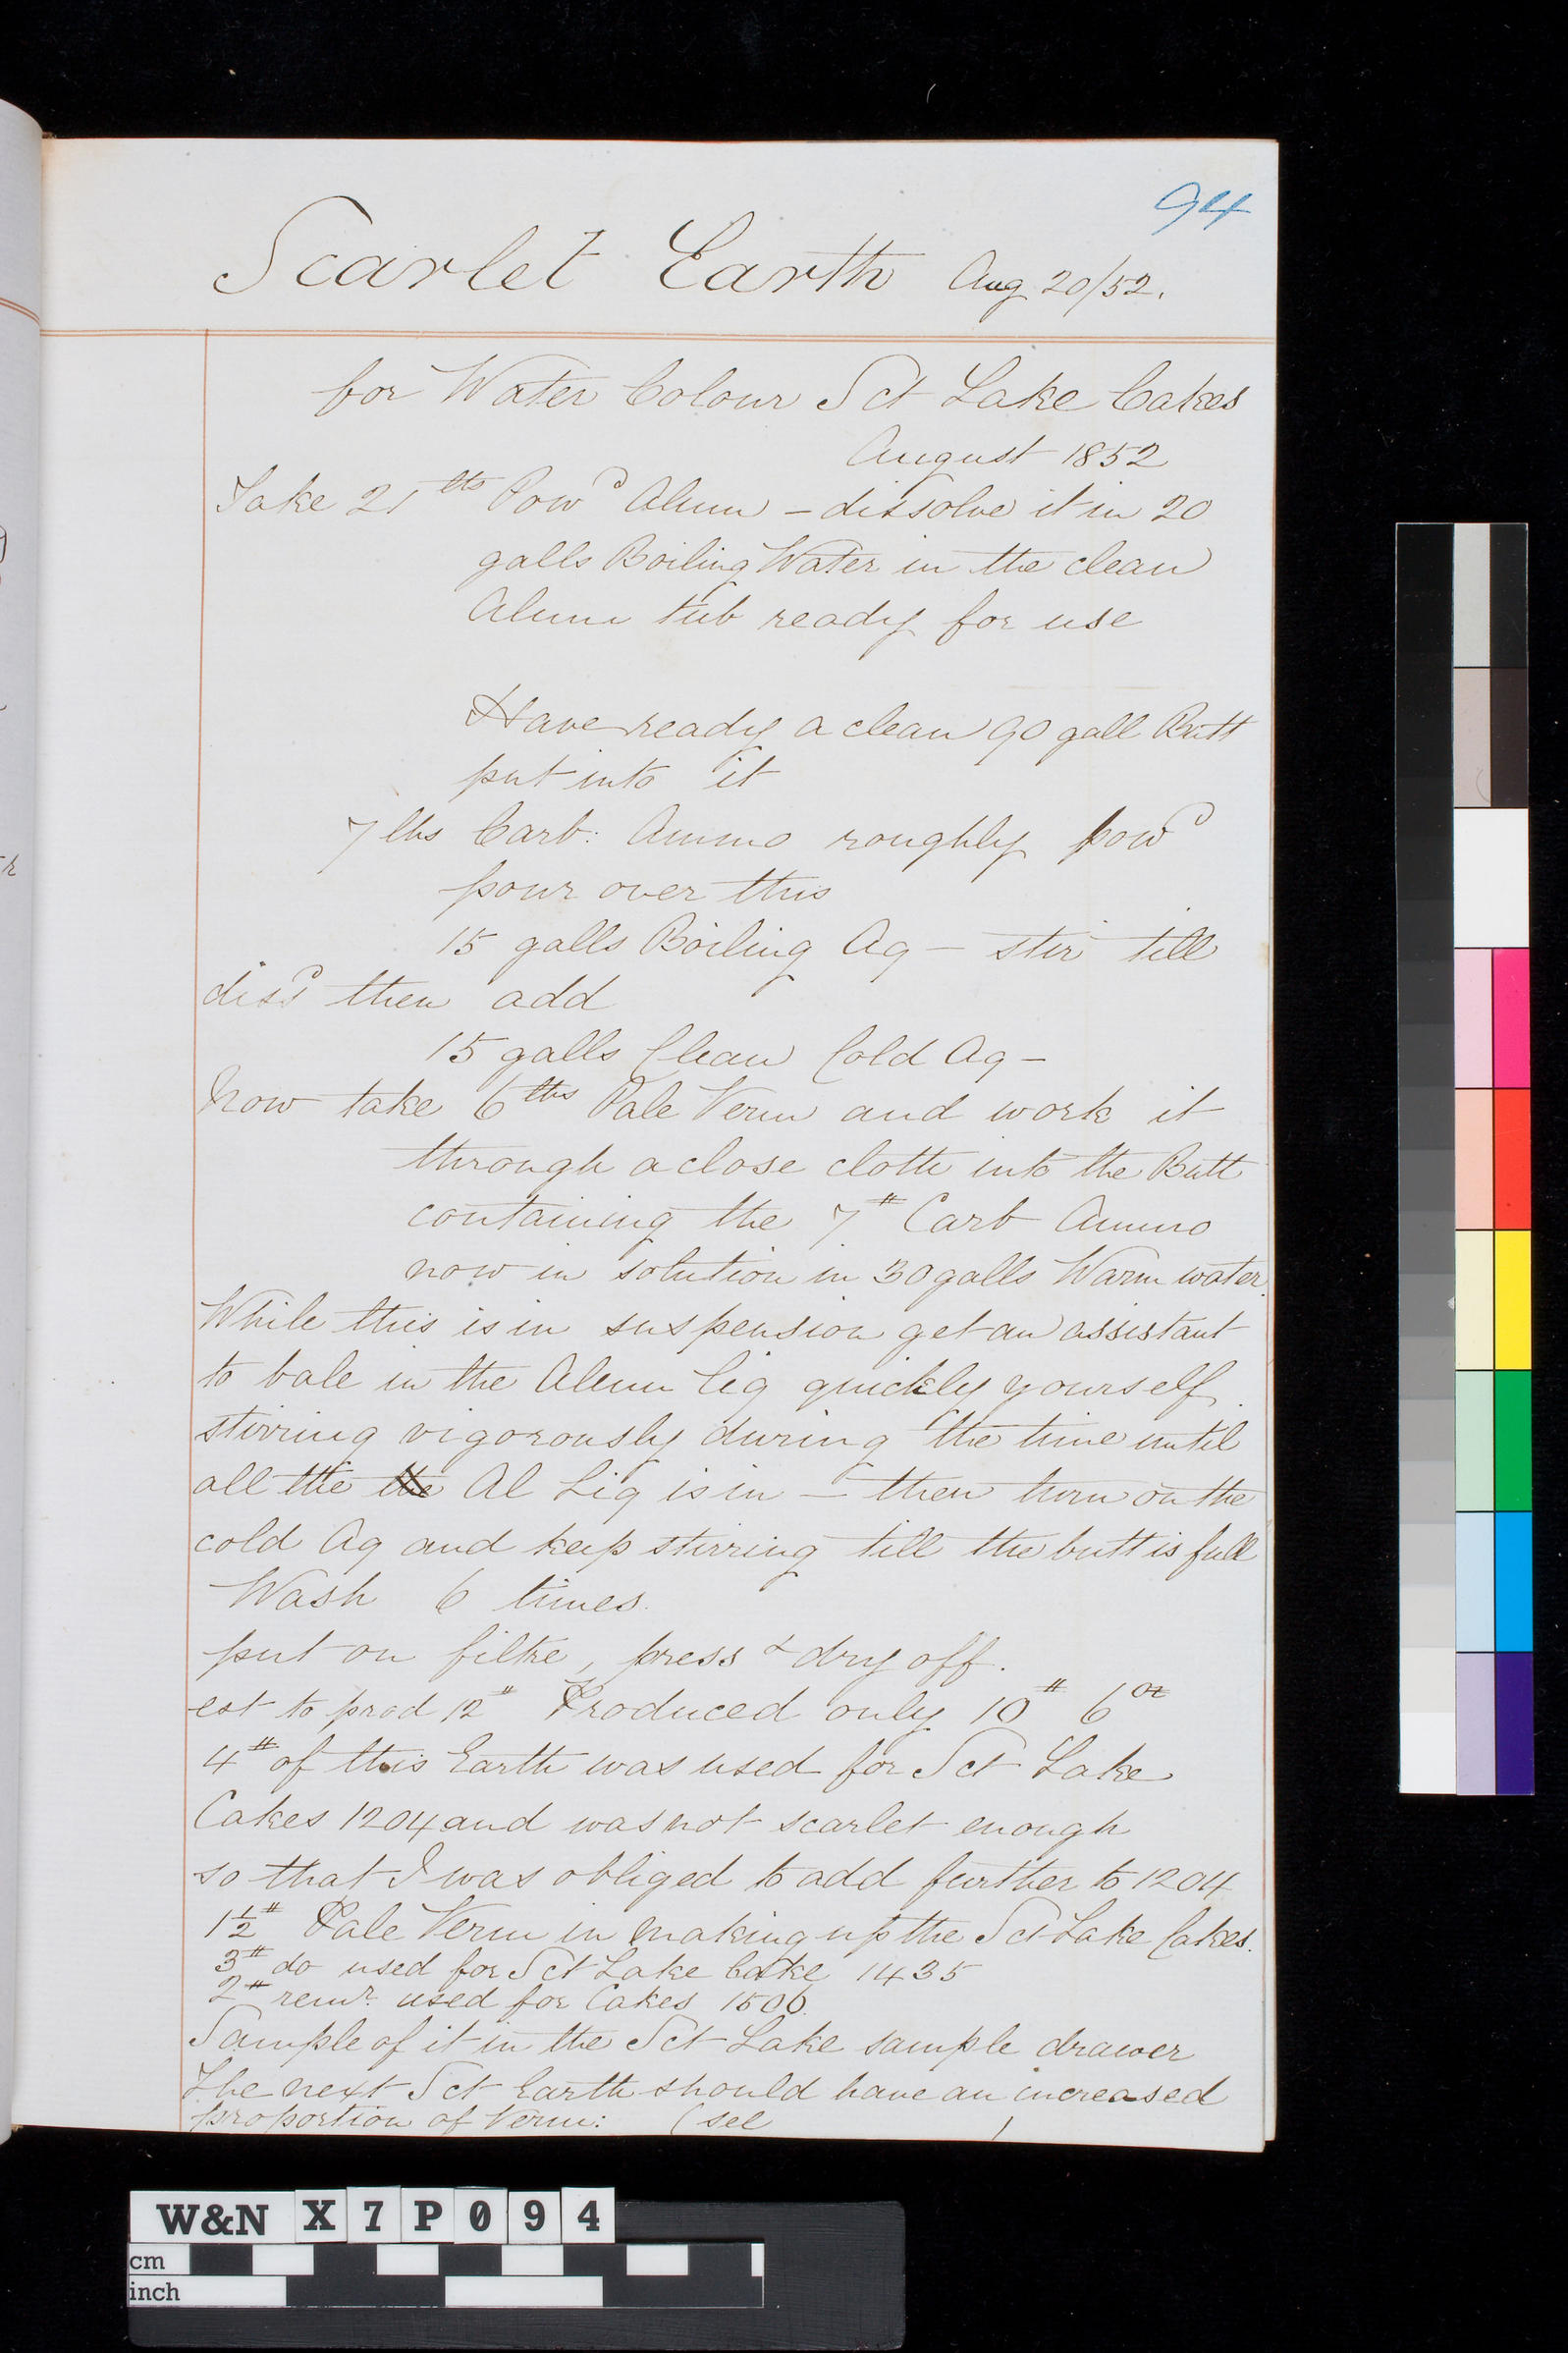 94
Scarlet Earth Aug 20/52.
for Water Colour Sct Lake Cakes
August 1852
Take 21 lbs Powd Alum – dissolve it in 20
galls Boiling Water in the clean
Alum tub ready for use
Have ready a clean 90 gall Butt
put into it
7 lbs Carb: Ammo roughly powd
pour over this
15 galls Boiling Aq – stir till
dissd then add
15 galls Clean Cold Aq –
Now take 6 lbs Pale Verm and work it
through a close cloth into the Butt
containing the 7# Carb Ammo
now in solution in 30 galls Warm water.
While this is in suspension get an assistant
to bale in the Alum Liq quickly yourself
stirring vigorously during the time until
all the the Al Liq is in – then turn on the
cold Aq and keep stirring till the butt is full
Wash 6 times.
put on filtre, press & dry off.
est to prod 12# Produced only 10# 6oz
4# of this Earth was used for Sct Lake
Cakes 1204 and was not scarlet enough
so that I was obliged to add further to 1204
1½# Pale Verm in making up the Sct Lake Cakes.
3# do used for Sct Lake Cake 1435
2# remr. used for Cakes 1506.
Sample of it in the Sct Lake sample drawer
The next Sct Earth should have an increased
proportion of Verm: (see )
W&N X7P094
cm
inch